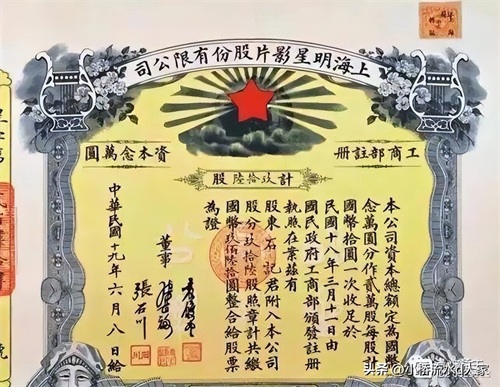 上海明星影片股份有限公司
工商部註冊
資本念萬圓
計玖拾陸股
本公司資本總額定為國幣
念萬圓分作貳萬股每股計
國幣拾圓一次收足於
民國十八年三月十一日由
國民政府工商部頒發註冊
執照在案茲有
股東石記君附入本公司
股分玖拾陸股照章計共繳
國幣玖佰陸拾圓整合給股票
為證
董事
張石川
中華民國十九年六月八日給